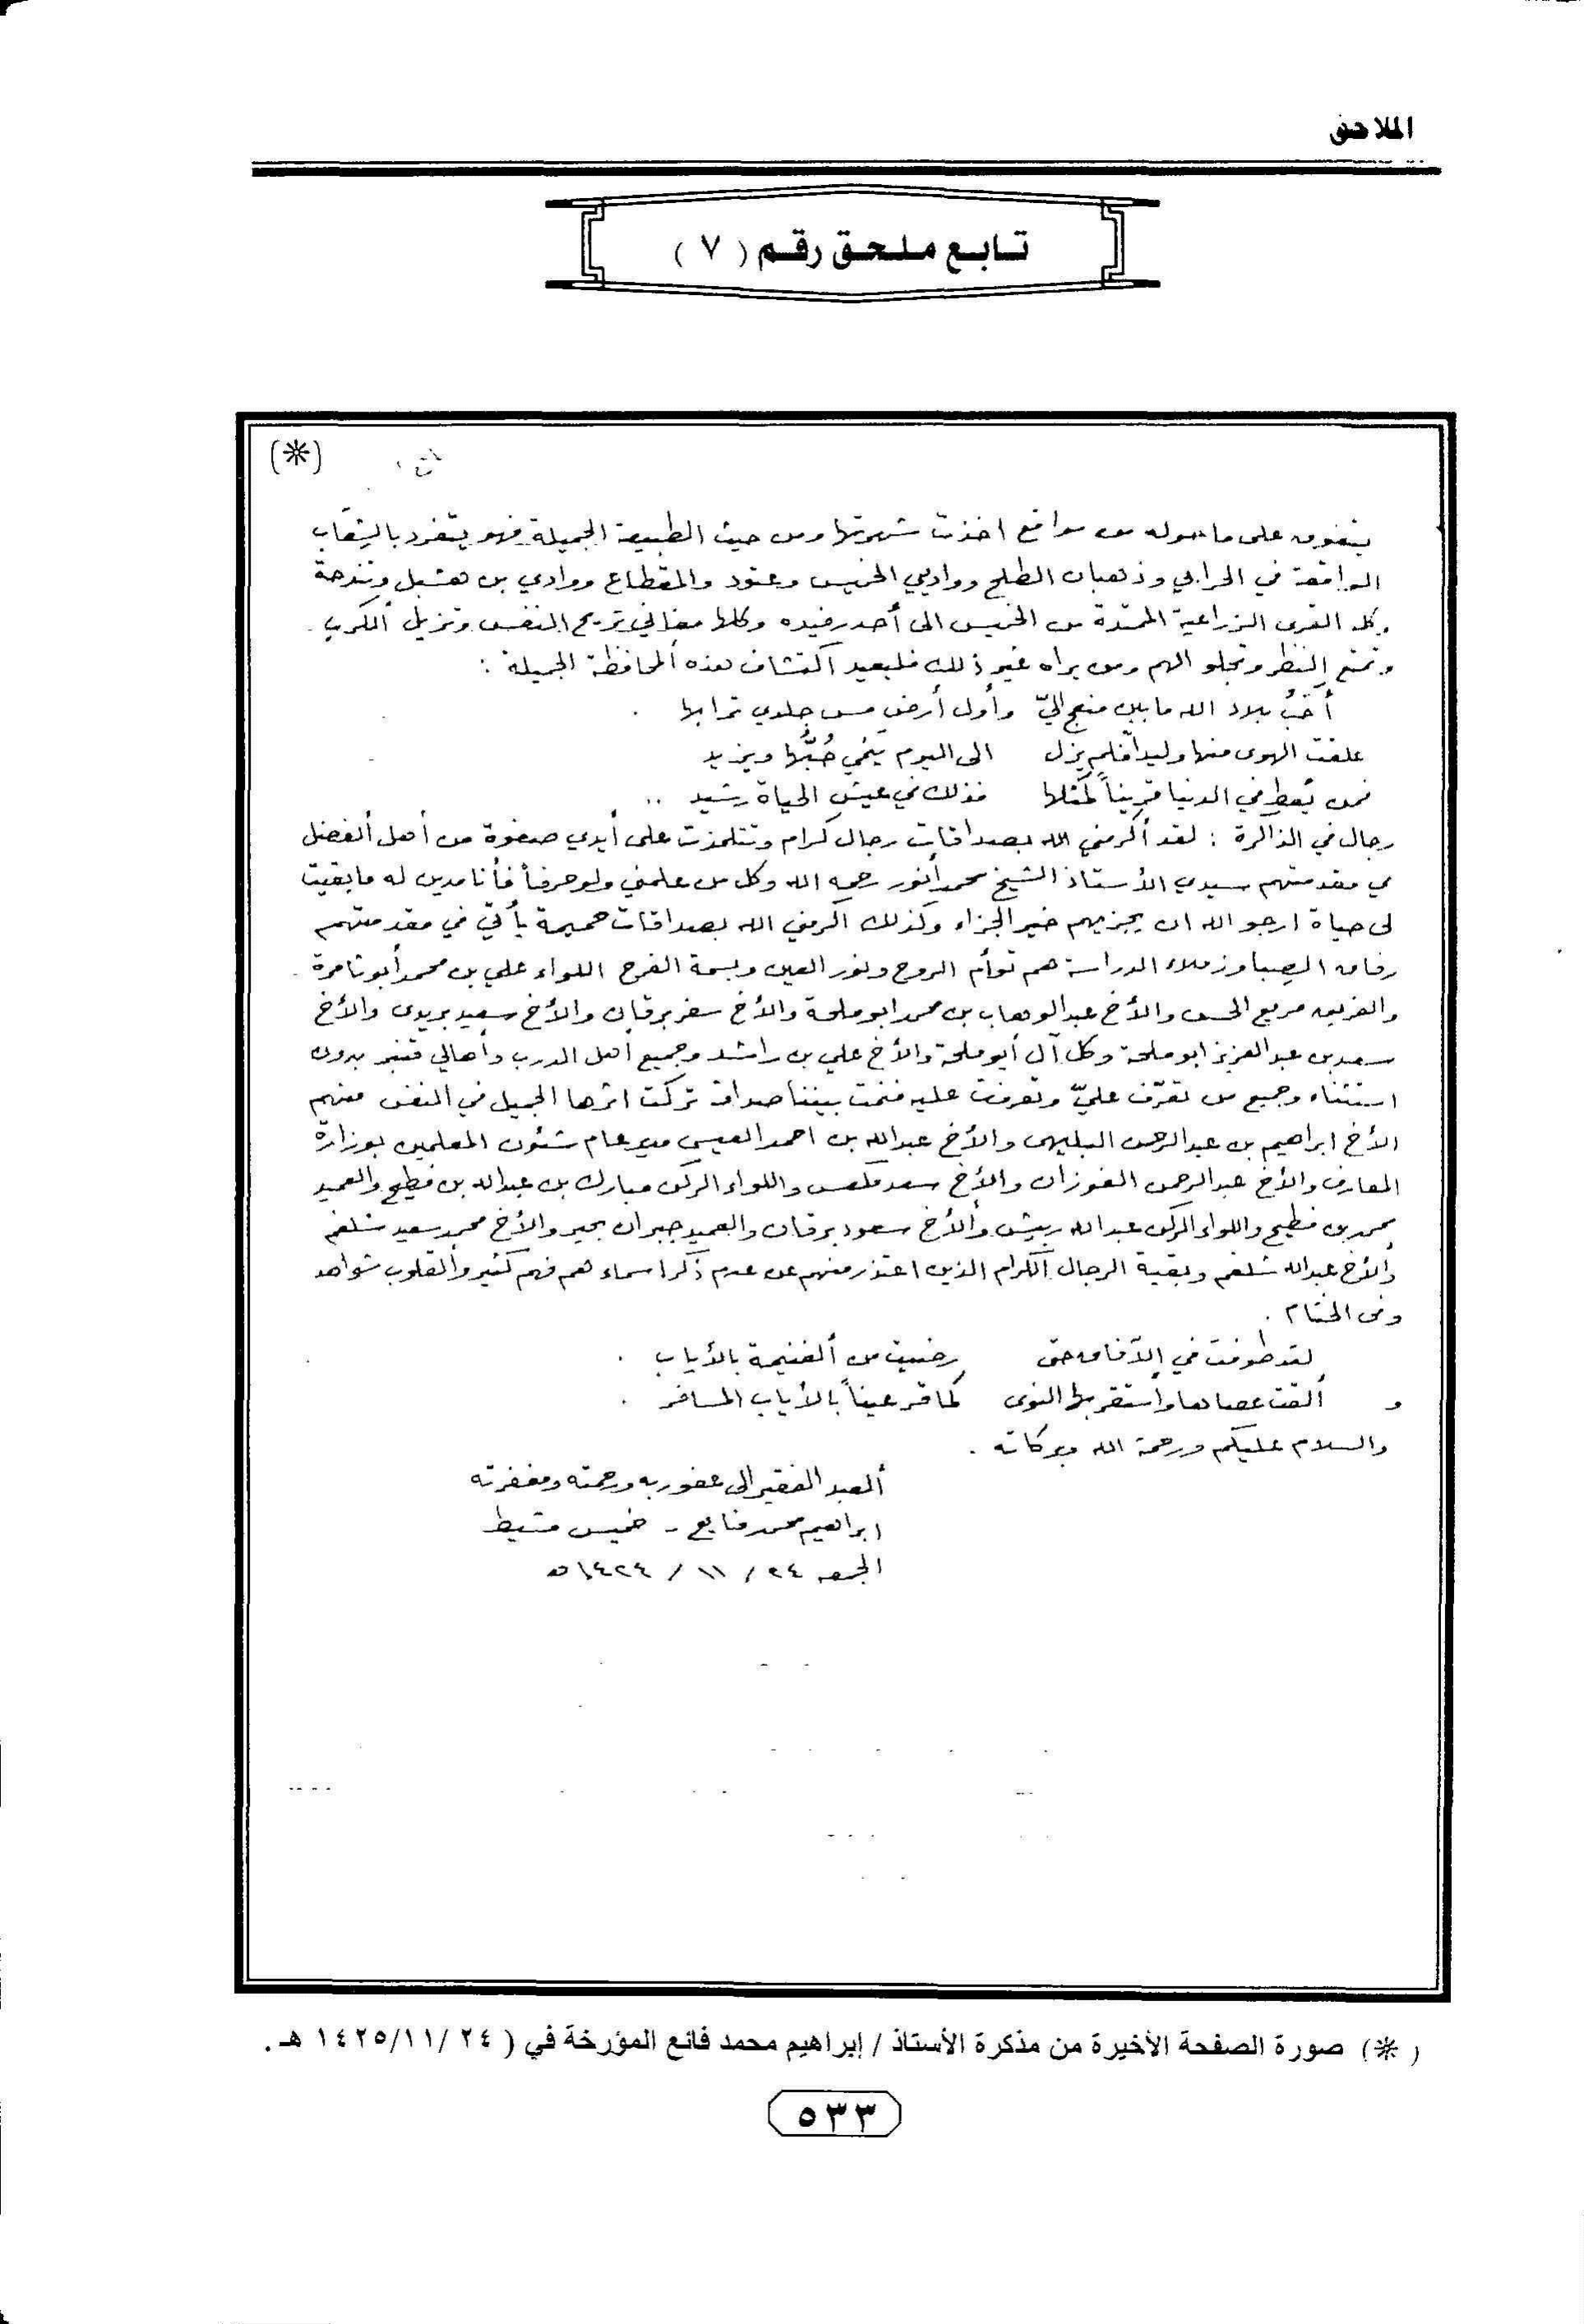 الملاحق
تابع ملحق رقم ( ٧ )
(*)
يتفوق على ماحوله من مواقع اخذت شهرتها ومن حيث الطبيعة الجميلة فهو يتفرد بالشعاب
الواقعة في الحرابي وذهبان الطلح وواديي الخميس وعتود والمقطاع ووادي بن هشبل وتندحة
وكل القرى الزراعية الممتدة من الخميس الى أحد رفيده وكلها مغاني تريح النفس وتزيل الكرب
وتمتع النظر وتجلو الهم ومن يراه غير ذلك فليعيد اكتشاف هذه المحافظة الجميلة :
أحبُ بلاد الله ما بين منعج اليّ وأول أرض مس جلدي ترابها .
علقت الهوى منها وليداً فلم يزل الى اليوم ينمي حُبُّها ويزيد
فمن يُعط في الدنيا قريناً كمثلها فذلك في عيش الحياة رشيد ..
رجال في الذاكرة : لقد أكرمني الله بصداقات رجال كرام وتتلمذت على أيدي صفوة من أهل الفضل
في مقدمتهم سيدي الأستاذ الشيخ محمد أنور رحمه الله وكل من علمني ولو حرفاً فأنا مدين له ما بقيت
لى حياة ارجو الله ان يجزيهم خير الجزاء وكذلك اكرمني الله بصداقات حميمة يأتي في مقدمتهم
رفاق الصِبا وزملاء الدراسة هم توأم الروح ونور العين وبسمة الفرح اللواء علي بن محمد أبو تامرة
والفريق مريع الحسن والأخ عبدالوهاب بن محمد ابو ملحة والأخ سفر برقان والأخ سعيد بريدى والأخ
سعد بن عبدالعزيز ابو ملحة وكل آل أبو ملحة والأخ علي بن راشد وجميع اهل الدرب وأهالي قنبر بدون
استثناء وجميع من تعرّف عليّ وتعرفت عليه فنمت بيننا صداقة تركت اثرها الجميل في النفس منهم
الأخ ابراهيم بن عبدالرحمن البليهى والأخ عبدالله بن احمد العيسي مدير عام شئون المعلمين بوزارة
المعارف والأخ عبدالرحمن الفوزان والأخ سعد ملعس واللواء الركن مبارك بن عبدالله بن فطيح والعميد
محمد بن فطيح واللواء الركن عبدالله ربيش والأخ سعود برقان والعميد جبران بحير والأخ محمد سعيد شلغم
والأخ عبدالله شلغم وبقية الرجال الكرام الذين اعتذر منهم عن عدم ذكر اسماءهم فهم كثير والقلوب شواهد
وفى الختام .
لقد طوفت في الآفاق حتى رضيت من الغنيمة بالأياب .
و ألقت عصاها وأستقر بها النوى كما قر عيناً بالأياب المسافر .
والسلام عليكم ورحمة الله وبركاته .
العبد الفقير الى عفو ربه ورحمته ومغفرته
ابراهيم محمد فنايع - خميس مشيط
الجمعه ٢٤ / ١١ / ١٤٢٤ هـ
( * ) صورة الصفحة الأخيرة من مذكرة الأستاذ / إبراهيم محمد فانع المؤرخة في ( ٢٤ /١٤٢٥/١١ هـ .
٥٣٣